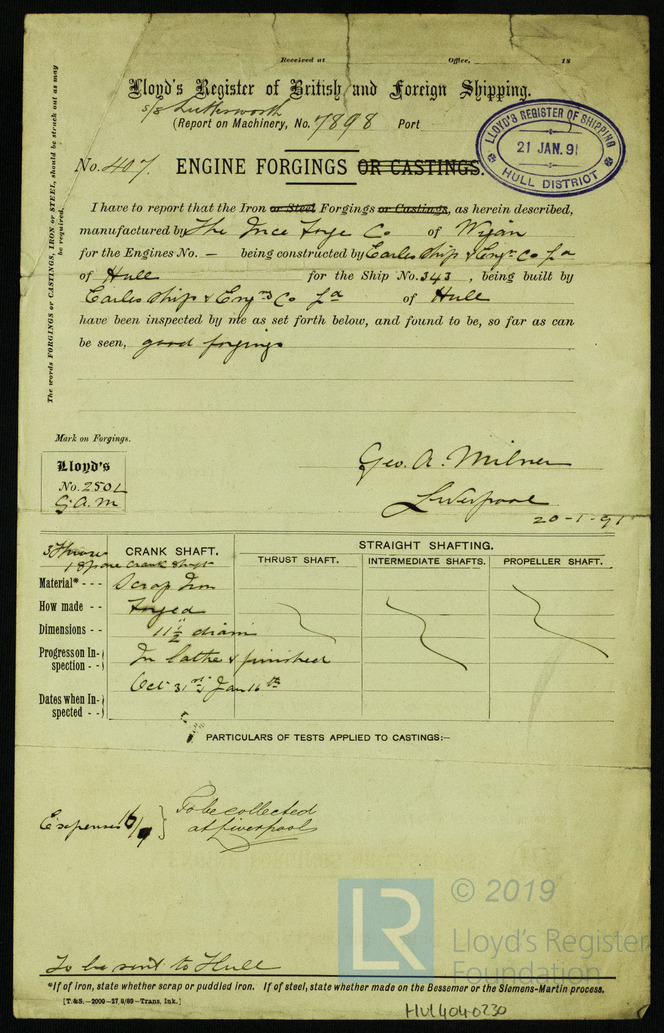 Received at Office, 18
Lloyd's Register of British and Foreign Shipping.
s/s Lutterworth
(Report on Machinery, No. 7898 Port
LLOYD'S REGISTER OF SHIPPING
21 JAN. 91
HULL DISTRICT
No. 407. ENGINE FORGINGS OR CASTINGS.
The words FORGINGS or CASTINGS, IRON or STEEL, should be struck out as may
be required.
I have to report that the Iron or Steel Forgings or Castings, as herein described,
manufactured by The Ince Forge Co of Wigan
for the Engines No. – being constructed by Earles Ship & Engr. Co Ld
of Hull for the Ship No. 343, being built by
Earles Ship & Engrs Co Ld of Hull
have been inspected by me as set forth below, and found to be, so far as can
be seen, good forgings
Mark on Forgings.
Lloyd's
No. 250 L
G.A.M
Geo. A. Milner
Liverpool
20-1-91
3 Throw
1 Spare Crank Shaft
CRANK SHAFT.
STRAIGHT SHAFTING.
THRUST SHAFT. INTERMEDIATE SHAFTS. PROPELLER SHAFT.
Material* - - - Scrap Iron
How made - - Forged
Dimensions - - 11½" diam
Progress on In-
spection - - In lathe & finished
Dates when In-
spected - - Oct 31st Jan 16th
PARTICULARS OF TESTS APPLIED TO CASTINGS:–
Expenses } To be collected
at Liverpool
To be sent to Hull
*If of iron, state whether scrap or puddled iron. If of steel, state whether made on the Bessemer or the Siemens-Martin process.
[T. & S.–2000–27/8/89–Trans. Ink.]
HUL4040230
LR
© 2019
Lloyd's Register
Foundation